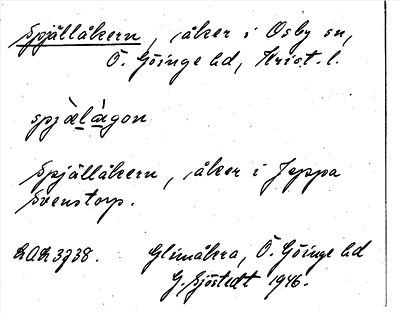 Spjällåkern, åker i Osby sn,
Ö. Göinge hd, Krist. l.
spjælågon
Spjällåkern, åker i Jeppa
Svenstorp.
Glimåkra, Ö. Göinge hd
G. Sjöstedt 1946.